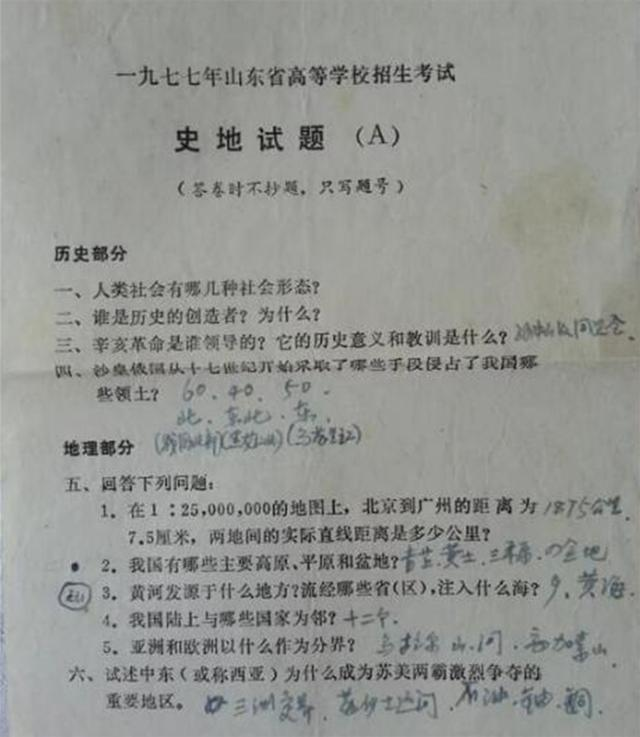 一九七七年山东省高等学校招生考试
史地试题(A)
(答卷时不抄题，只写题号)
历史部分
一、人类社会有哪几种社会形态?
二、谁是历史的创造者? 为什么?
三、辛亥革命是谁领导的? 它的历史意义和教训是什么? 同盟会
四、沙皇俄国从十七世纪开始采取了哪些手段侵占了我国哪
些领土? 60.40.50.
北.东北.东.
地理部分
五、回答下列问题:
1. 在1:25,000,000的地图上，北京到广州的距离为 1875公里.
7.5厘米，两地间的实际直线距离是多少公里?
2. 我国有哪些主要高原、平原和盆地? 青芷.黄土.三
3. 黄河发源于什么地方?流经哪些省(区)，注入什么海? 9.黄海.
4. 我国陆上与哪些国家为邻? 十二个.
5. 亚洲和欧洲以什么作为分界? 乌拉尔山.河.高加索山.
六、试述中东(或称西亚)为什么成为苏美两霸激烈争夺的
重要地区。 三洲交界.苏伊士运河.石油.铀.铜.